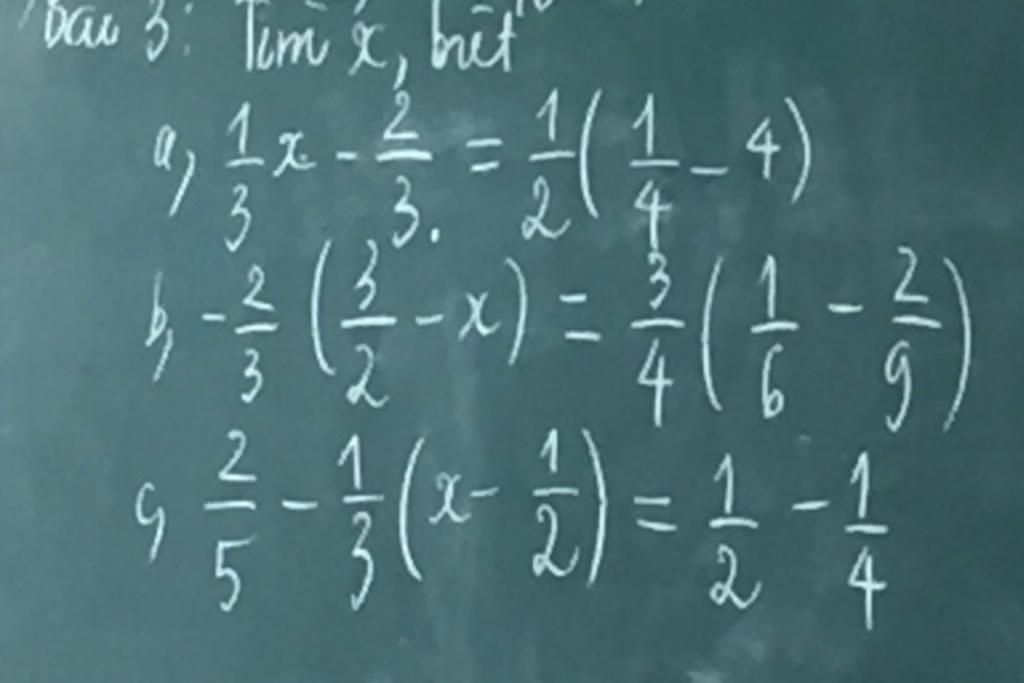 Bài 3: Tìm x, biết
a, 1/3 x - 2/3. = 1/2 ( 1/4 - 4 )
b, - 2/3 ( 3/2 - x ) = 3/4 ( 1/6 - 2/9 )
c, 2/5 - 1/3 ( x - 1/2 ) = 1/2 - 1/4